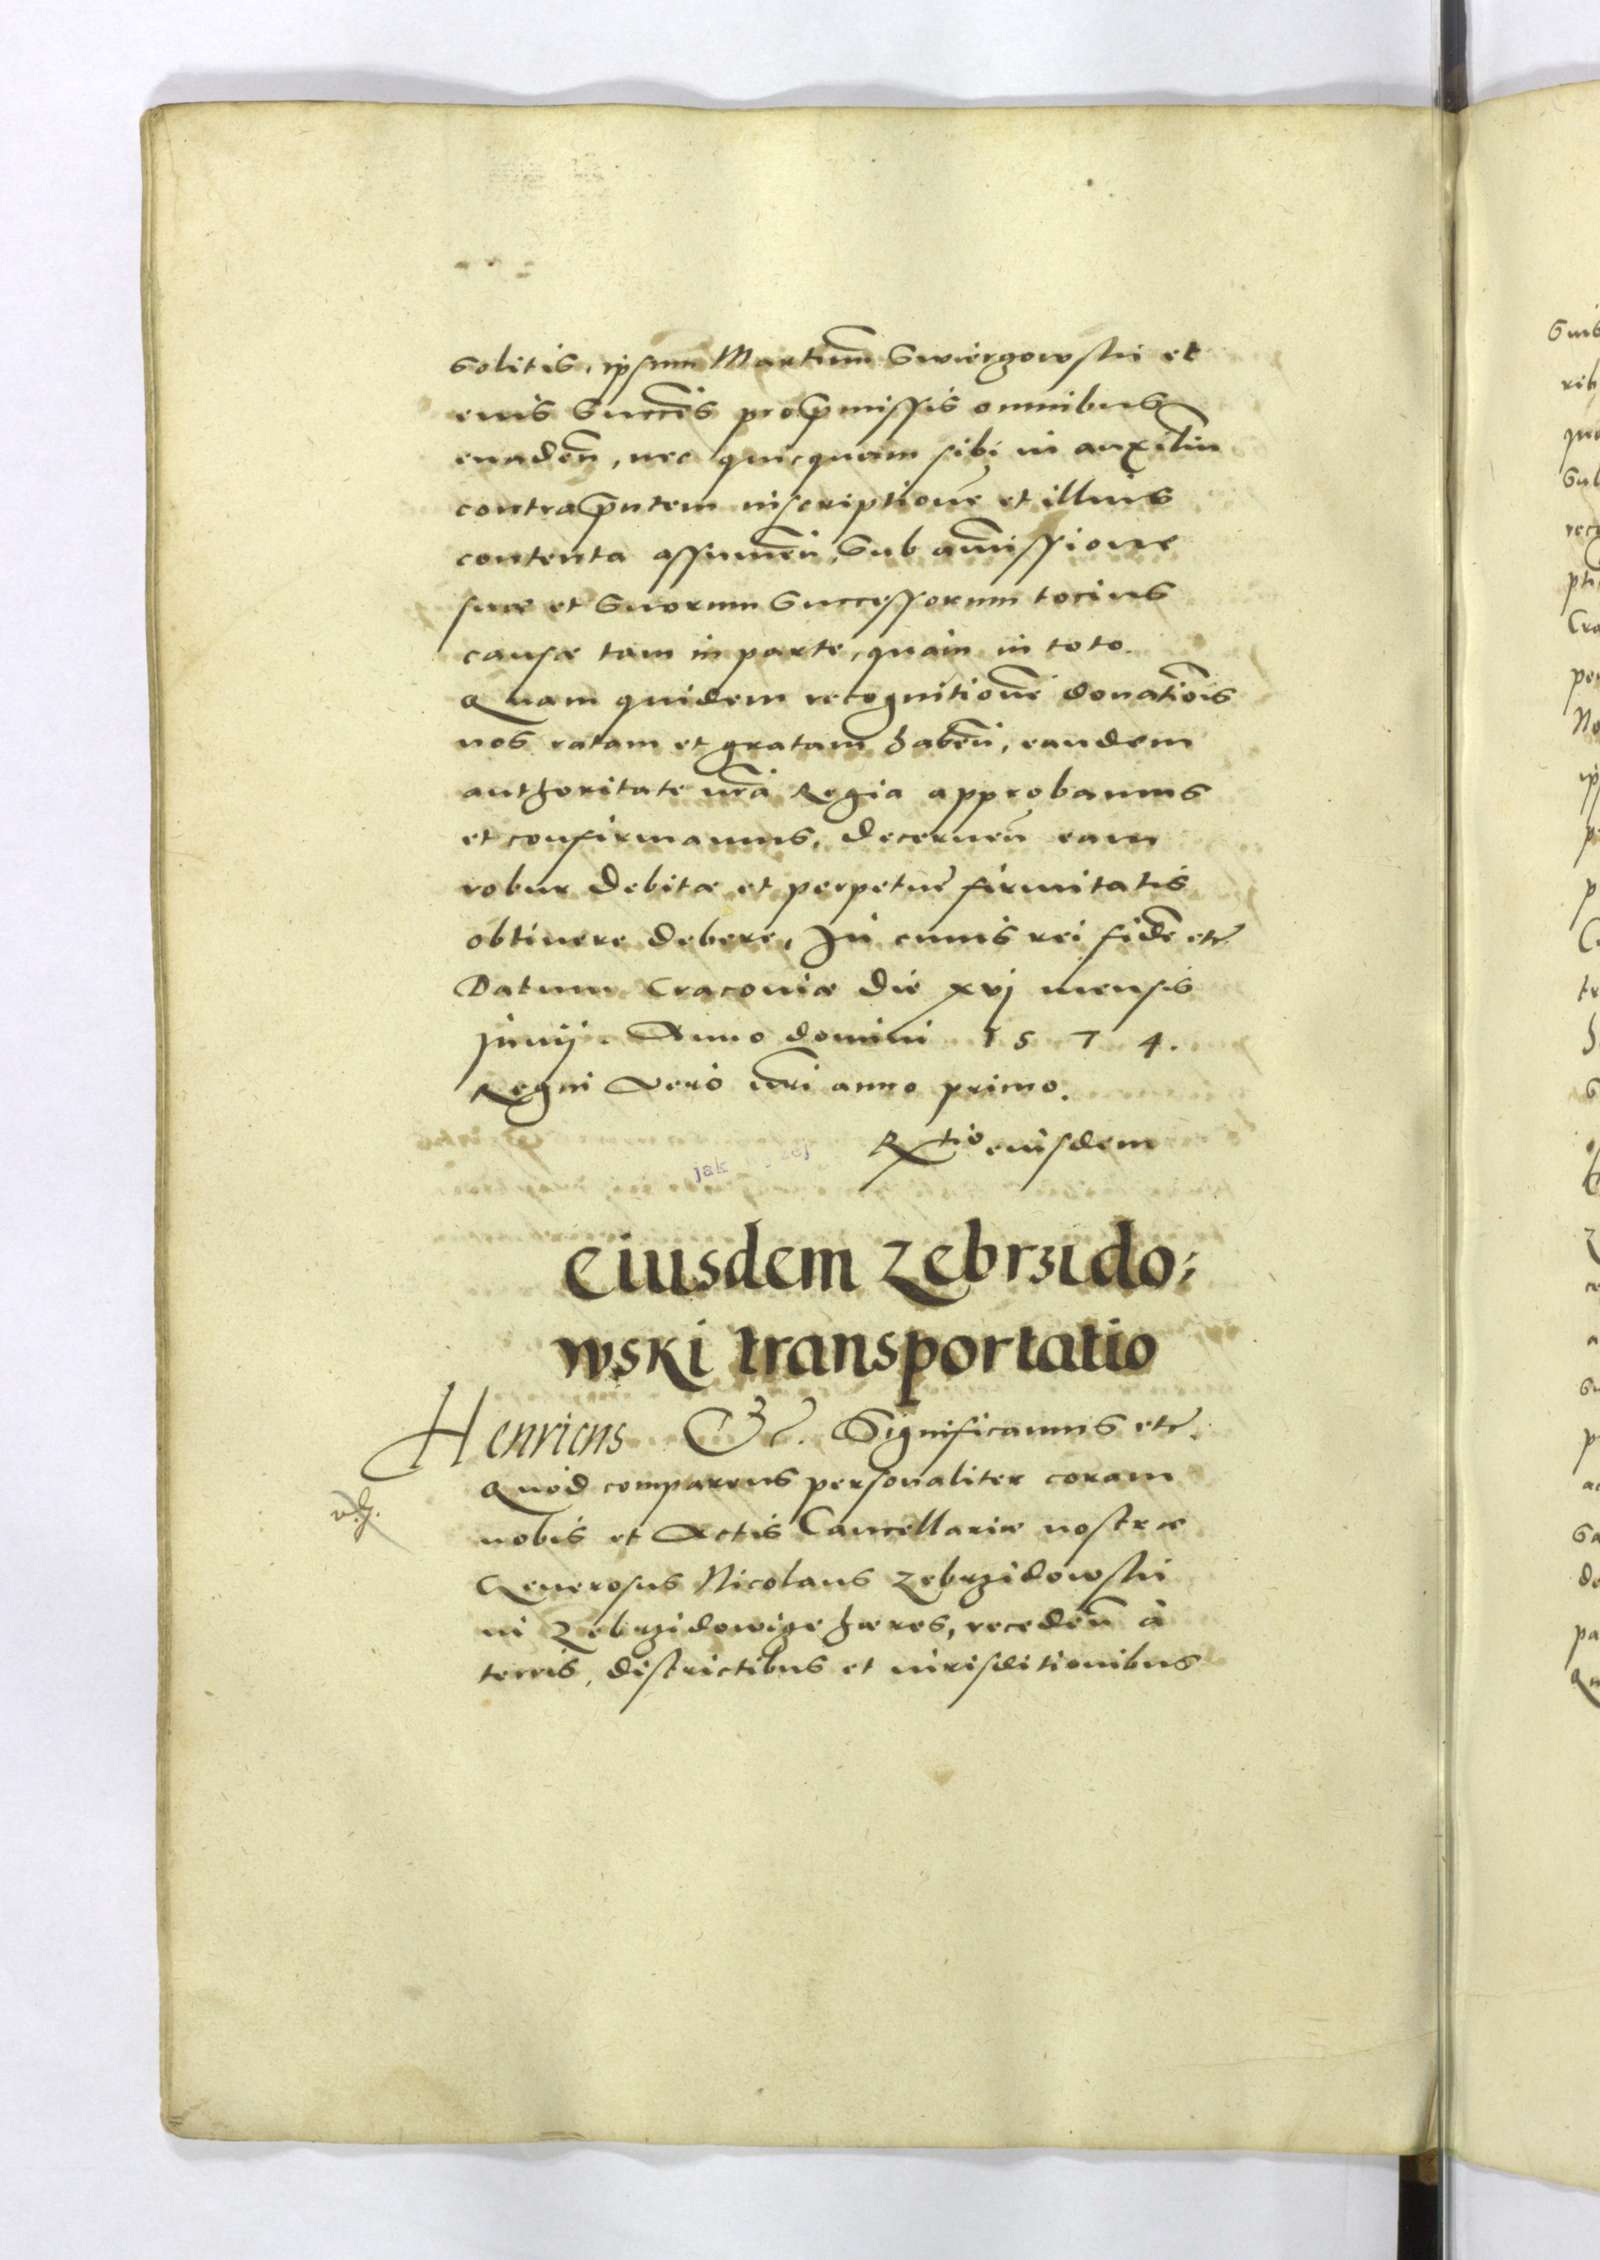 solitis, ipsum Martinũ Swiergowski et
eius Succẽs pro p̃missis omnibus
euadeñ, nec quicquam sibi in auxiliũ
contra p̃ntem inscriptionẽ et illius
contenta assumeñ, Sub am̃issione
suæ et Suorum Successorum tocius
causæ tam in parte, quàm in toto.
Quam quidem recognitionẽ donatiõis
nos ratam et gratam habeñ, eandem
authoritate nr̃a Regia approbamus
et confirmamus, decerneñ eam
robur debitæ et perpetuę firmitatis
obtinere debere, In cuius rei fidẽ etc̃
Datum Cracouiæ die xvj mensis
Junij. Anno domini 1574.
Regni Vero nr̃i anno primo.
Rtio eiusdem
jak
eiusdem zebrzido:
wski transportatio
Henricus &c. Significamus etc̃.
Quod comparens personaliter coram
nobis et Actis Cancellariæ nostræ
Generosus Nicolaus Zebrzidowski
in Zebrzidowice hæres, recedeñ à
terris, districtibus et iurisditionibus